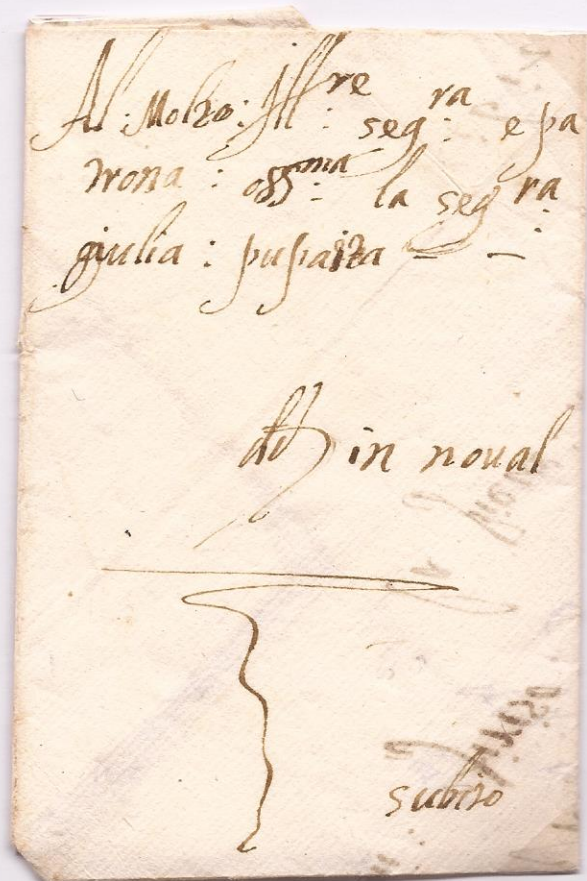 Al: Molto: Ill:re seg:ra e pa
trona: oss:ma la seg:ra
giulia: pupaita
in noual
subito